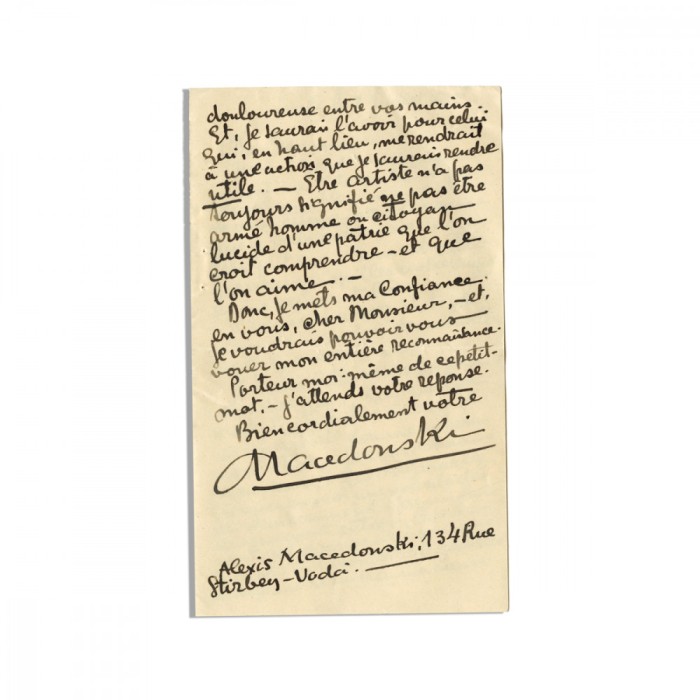 douloureuse entre vos mains.
Et, je saurai l'avoir pour celui
qui, en haut lieu, me rendrait
à une action que je saurais rendre
utile. — Etre artiste n'a pas
toujours signifié ne pas être
armé homme ou citoyen
lucide d'une patrie que l'on
croit comprendre – et que
l'on aime. —
Donc, je mets ma Confiance
en vous, cher Monsieur, – et,
je voudrais pouvoir vous
vouer mon entière reconnaissance.
Porteur moi-même de ce petit-
mot, – j'attends votre réponse.
Bien cordialement votre
Macedonski
Alexis Macedonski, 134 Rue
Stirbey-Voda. —